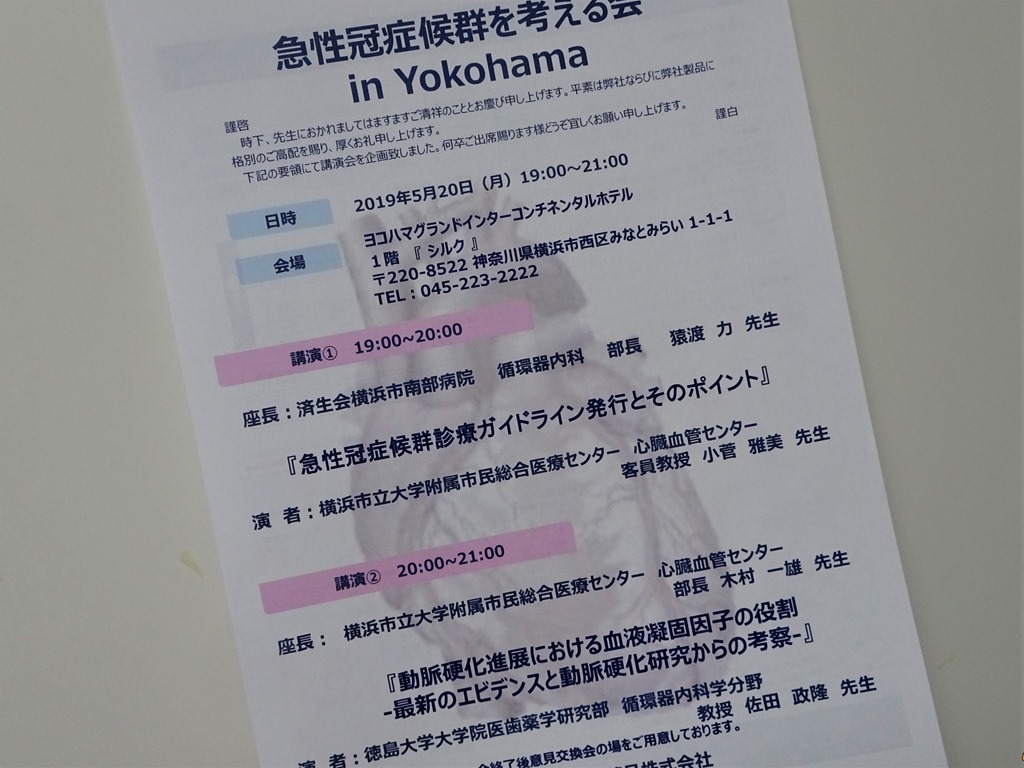 急性冠症候群を考える会
in Yokohama
謹啓
時下、先生におかれましてはますますご清祥のこととお慶び申し上げます。平素は弊社ならびに弊社製品に
格別のご高配を賜り、厚くお礼申し上げます。
下記の要領にて講演会を企画致しました。何卒ご出席賜ります様どうぞ宜しくお願い申し上げます。
謹白
日時 2019年5月20日（月）19:00～21:00
会場 ヨコハマグランドインターコンチネンタルホテル
1階 『 シルク 』
〒220-8522 神奈川県横浜市西区みなとみらい 1-1-1
TEL：045-223-2222
講演① 19:00~20:00
座長：済生会横浜市南部病院 循環器内科 部長 猿渡 力 先生
『急性冠症候群診療ガイドライン発行とそのポイント』
演 者：横浜市立大学附属市民総合医療センター 心臓血管センター
客員教授 小菅 雅美 先生
講演② 20:00~21:00
座長： 横浜市立大学附属市民総合医療センター 心臓血管センター
部長 木村 一雄 先生
『動脈硬化進展における血液凝固因子の役割
-最新のエビデンスと動脈硬化研究からの考察-』
演 者：徳島大学大学院医歯薬学研究部 循環器内科学分野
教授 佐田 政隆 先生
会終了後意見交換会の場をご用意しております。
株式会社